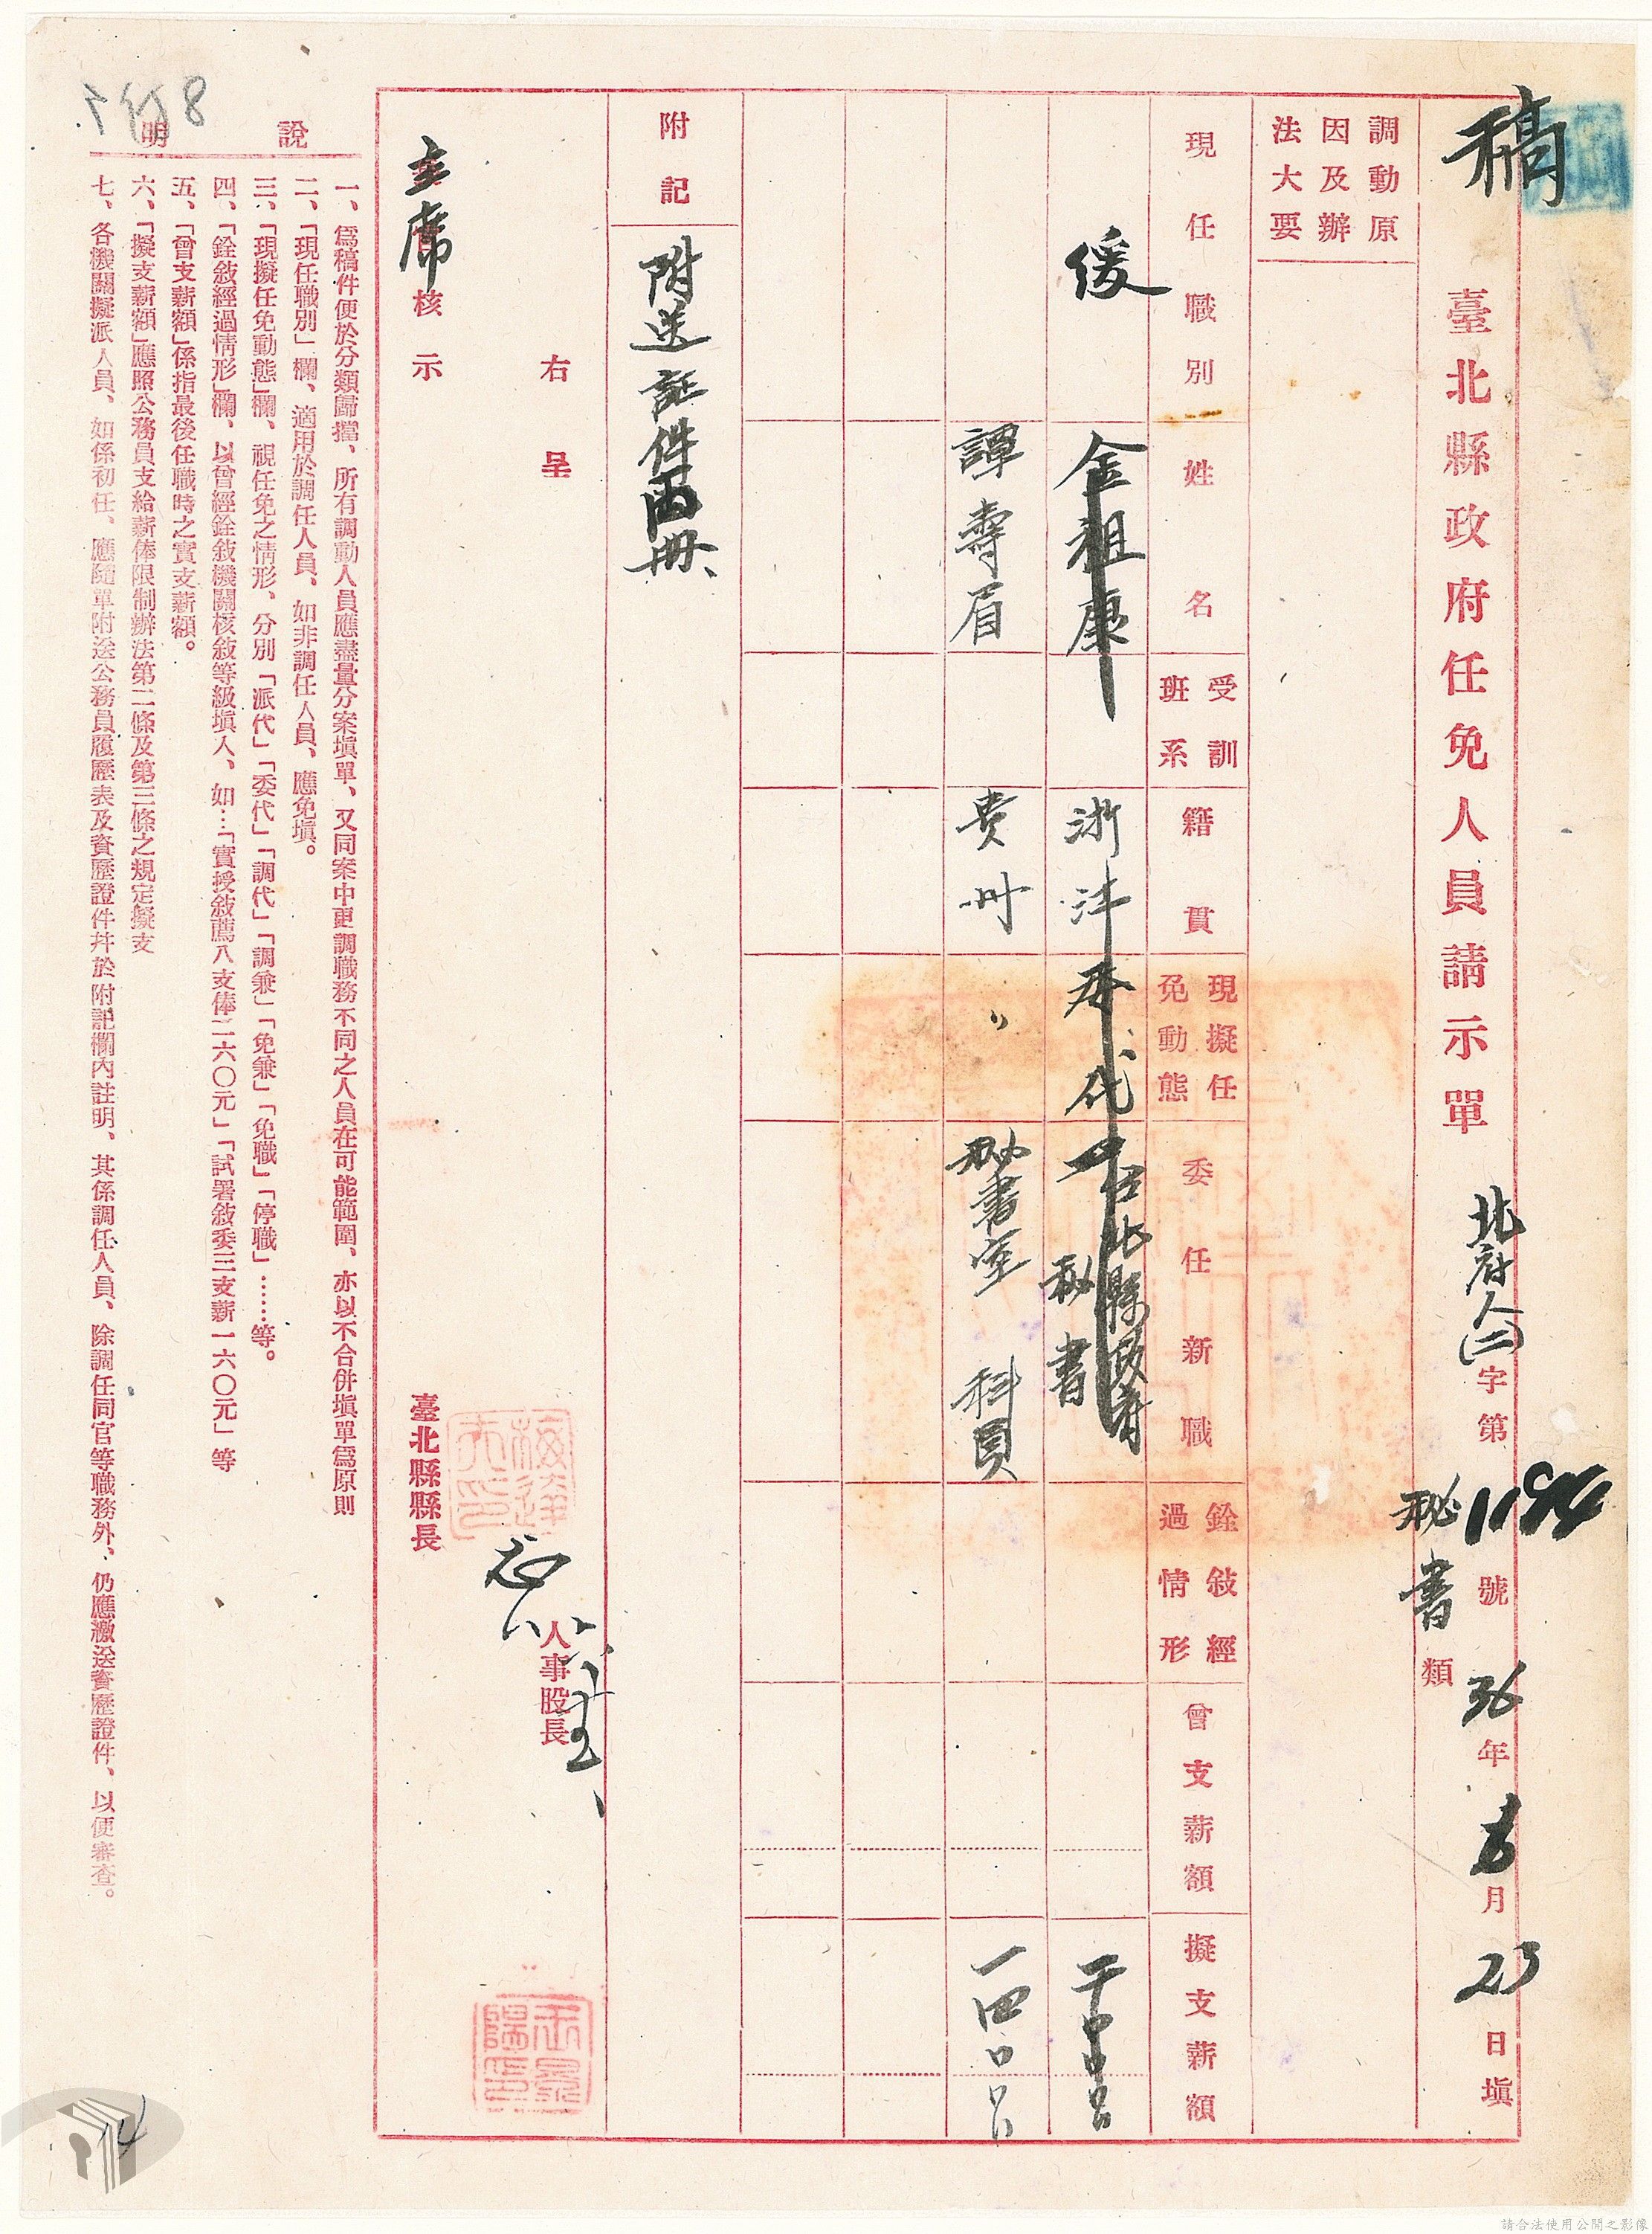 稿
臺北縣政府任免人員請示單
北府人(二)字第1184號
36年 月23日填
秘書類
調動原因及辦法大要
現任職別
姓名
受訓班系
籍貫
現擬任免動態
委任新職
銓敍經過情形
曾支薪額
擬支薪額
緩
金祖康
浙江
派代
台北縣政府
秘書
譚壽眉
貴州
〃
秘書室 科員
一四〇
附記
附送証件兩冊、
右呈
主席核示
臺北縣縣長
梅達夫印
人事股長
說明
一、爲稿件便於分類歸擋、所有調動人員應盡量分案填單、又同案中更調職務不同之人員在可能範圍、亦以不合併填單爲原則
二、「現任職別」欄、適用於調任人員、如非調任人員、應免填。
三、「現擬任免動態」欄、視任免之情形、分別「派代」「委代」「調代」「調兼」「免兼」「免職」「停職」……等。
四、「銓敍經過情形」欄、以曾經銓敍機關核敍等級填入、如…「實授敍薦八支俸二六〇元」「試署敍委三支薪一六〇元」等
五、「曾支薪額」係指最後任職時之實支薪額。
六、「擬支薪額」應照公務員支給薪俸限制辦法第二條及第三條之規定擬支
七、各機關擬派人員、如係初任、應隨單附送公務員履歷表及資歷證件幷於附記欄內註明、其係調任人員、除調任同官等職務外、仍應繳送資歷證件、以便審查。
14
請合法使用公開之影像